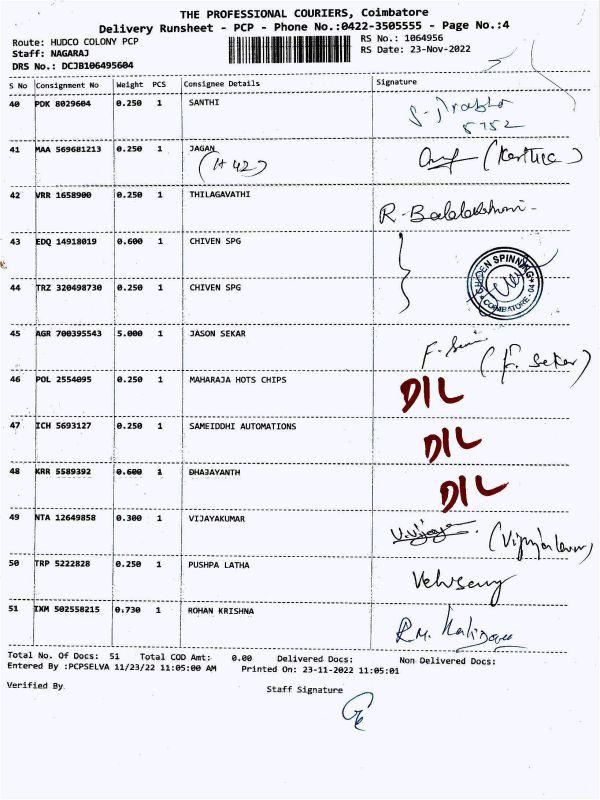 THE PROFESSIONAL COURIERS, Coimbatore
Delivery Runsheet - PCP - Phone No.:0422-3505555 - Page No.:4
Route: HUDCO COLONY PCP RS No.: 1064956
Staff: NAGARAJ RS Date: 23-Nov-2022
DRS No.: DCJB106495604
S No Consignment No Weight PCS Consignee Details Signature
40 PDK 8029604 0.250 1 SANTHI
5752
41 MAA 569681213 0.250 1 JAGAN (Karthica)
(H 42)
42 VRR 1658900 0.250 1 THILAGAVATHI
R. Balalakshmi
43 EDQ 14918019 0.600 1 CHIVEN SPG
SPINNING
44 TRZ 320498730 0.250 1 CHIVEN SPG
COIMBATORE - 04
45 AGR 700395543 5.000 1 JASON SEKAR
(F. Sekar)
46 POL 2554095 0.250 1 MAHARAJA HOTS CHIPS D/L
47 ICH 5693127 0.250 1 SAMEIDDHI AUTOMATIONS D/L
48 KRR 5589392 0.600 1 DHAJAYANTH D/L
49 NTA 12649858 0.300 1 VIJAYAKUMAR
50 TRP 5222828 0.250 1 PUSHPA LATHA
51 IXM 502558215 0.730 1 ROHAN KRISHNA
Total No. Of Docs: 51 Total COD Amt: 0.00 Delivered Docs: Non Delivered Docs:
Entered By :PCPSELVA 11/23/22 11:05:00 AM Printed On: 23-11-2022 11:05:01
Verified By Staff Signature